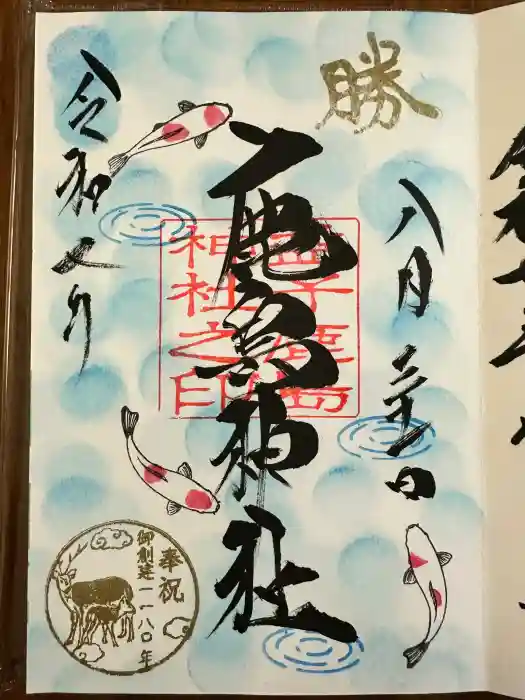 勝
八月
日
鹿島神社
益子鹿
神社之印
令和七年
奉祝
御創建一一八〇年